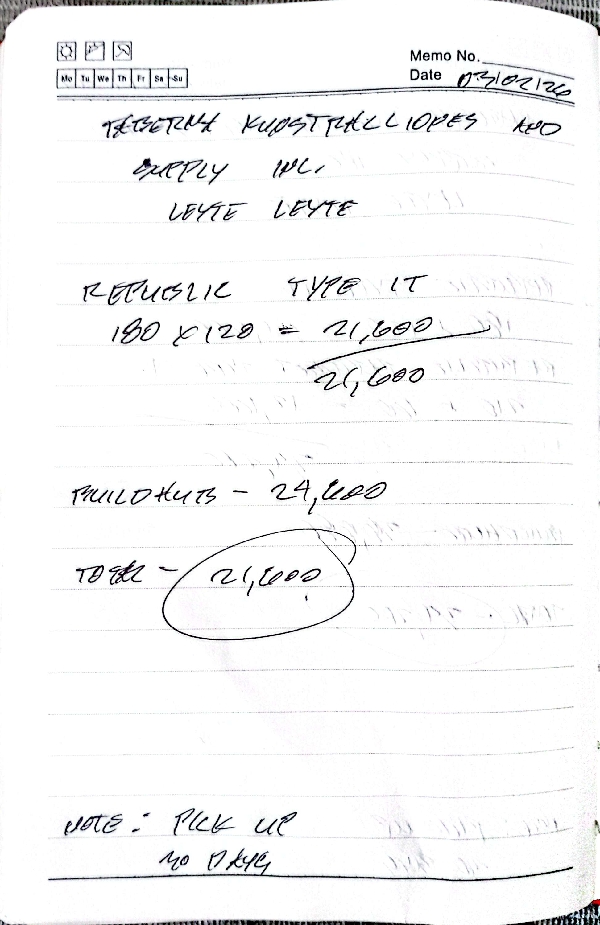 Mo Tu We Th Fr Sa Su
Memo No.
Date 03/02/26
AND
SUPPLY INC.
LEYTE LEYTE
REPUBLIC TYPE 1T
180 X 120 = 21,600
21,600
BUILDHUB - 21,600
TOTAL - 21,600
NOTE: PICK UP
30 DAYS